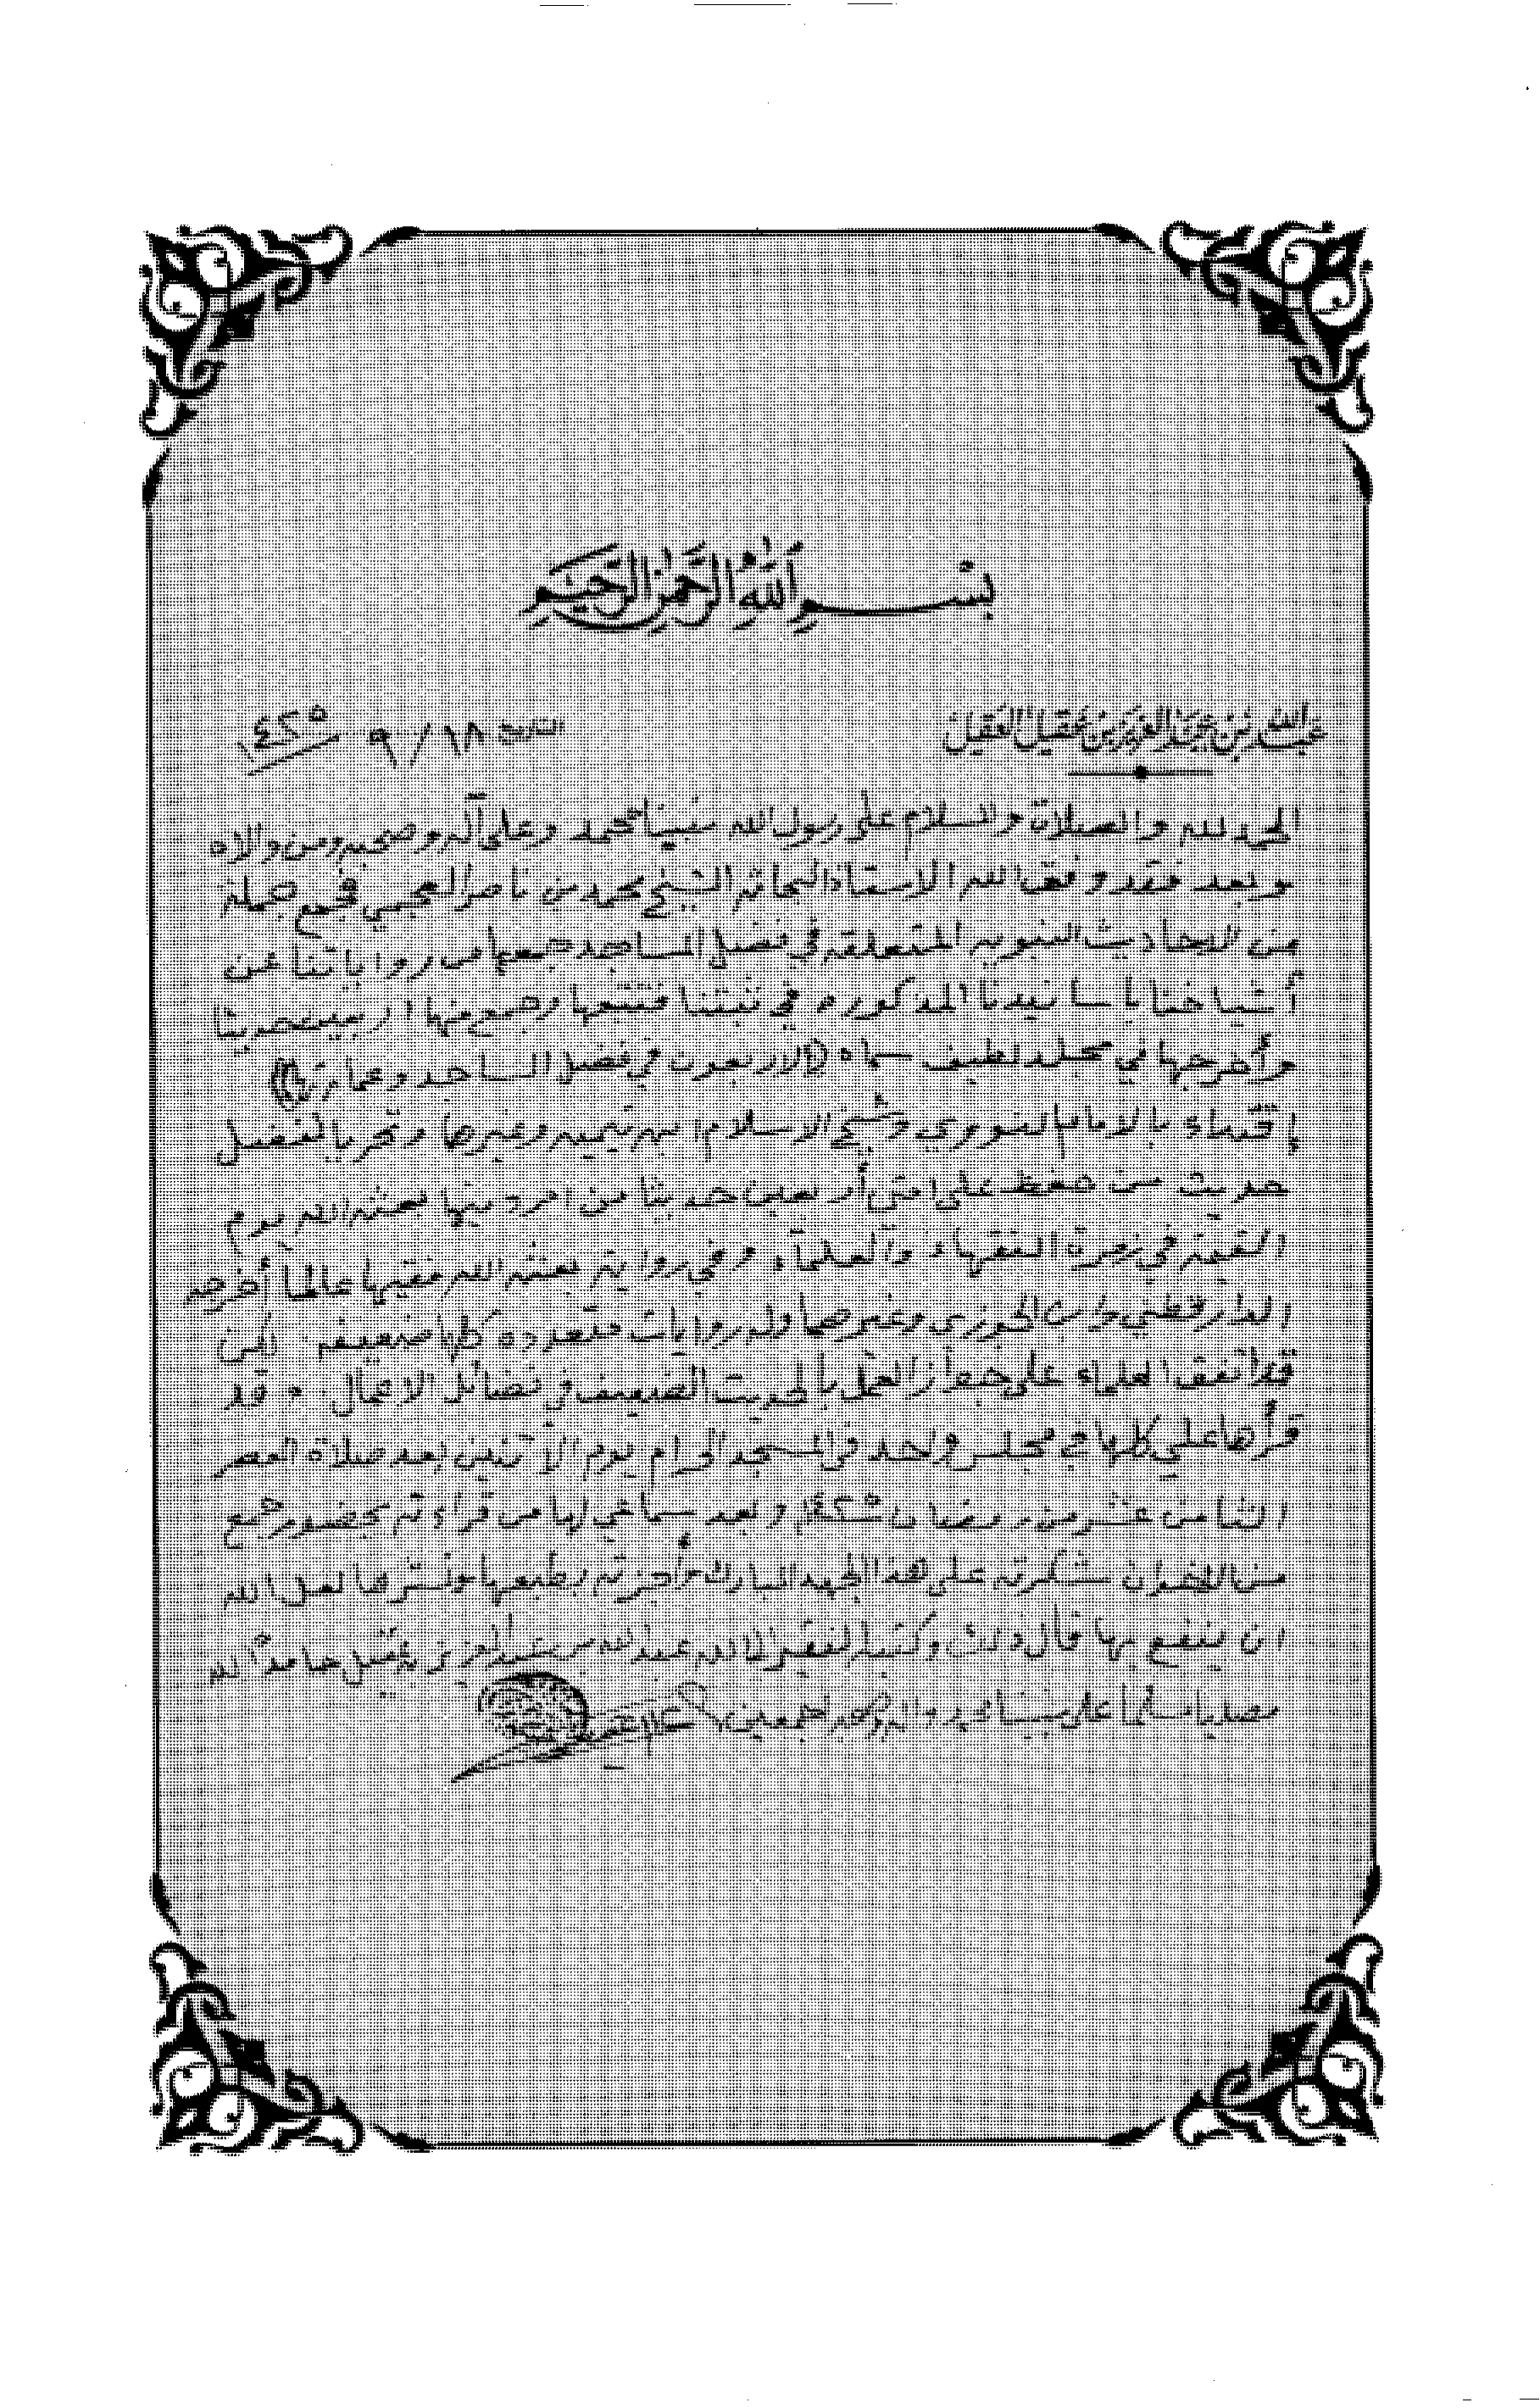 بسم الله الرحمن الرحيم
عبد الله بن عبد العزيز بن عقيل العقيل
التاريخ ١٨ / ٩ / ١٤٢٥
الحمد لله والصلاة والسلام على رسول الله نبينا محمد وعلى آله وصحبه ومن والاه
وبعد فقد وفق الله الاستاذ البحاثه الشيخ محمد بن ناصر العجمي فجمع جملة
من الاحاديث النبويه المتعلقه في فضل المساجد جمعها من رواياتنا عن
أشياخنا باسانيدنا المذكوره في ثبتنا فتتبعها وجمع منها اربعين حديثا
وأخرجها في مجلد لطيف سماه ((الاربعون في فضل المساجد وعمارتها))
إقتداء بالامام النووي وشيخ الاسلام ابن تيميه وغيرها وتحريا لفضل
حديث من حفظ على امتي أربعين حديثا من امر دينها بعثه الله يوم
القيمة في زمرة الفقهاء والعلماء وفي رواية بعثه الله فقيها عالما أخرجه
الدارقطني وابن الجوزي وغيرهما وله روايات متعدده كلها ضعيفه لكن
قد اتفق العلماء على جواز العمل بالحديث الضعيف في فضائل الاعمال. وقد
قرأها علي كلها في مجلس واحد في المسجد الحرام يوم الأثنين بعد صلاة العصر
الثامن عشر من رمضان ١٤٢٥ وبعد سماعي لها من قراءته بحضور جمع
من الاخوان شكرته على هذا الجهد المبارك وأجزته بطبعها ونشرها لعل الله
ان ينفع بها قال ذلك وكتبه الفقير الى الله عبد الله بن عبد العزيز بن عقيل حامداً لله
مصليا مسلما على نبينا محمد واله وصحبه اجمعين